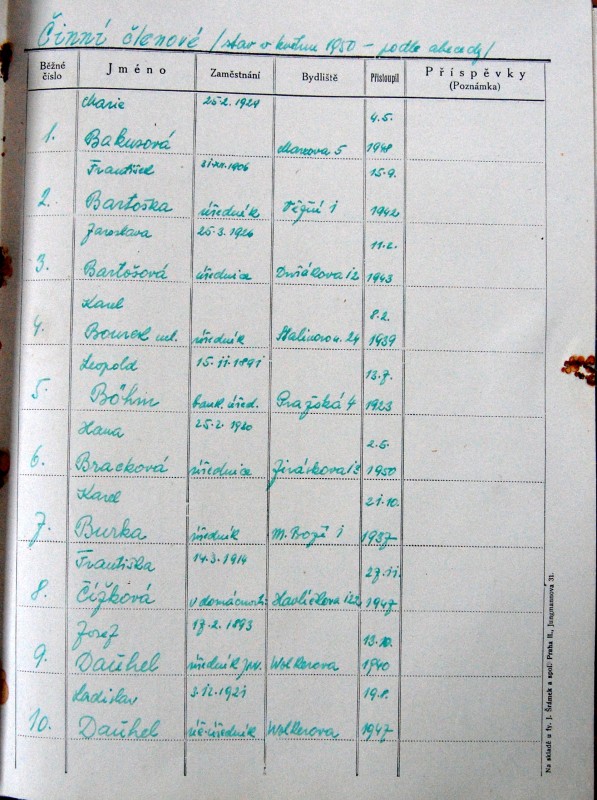 Činní členové /stav v květnu 1950 - podle abecedy/
Běžné číslo Jméno Zaměstnání Bydliště Přistoupil Příspěvky (Poznámka)
Marie 25.2. 1924 4.5.
1. Bakusová Marxova 5 1948
František 1906 15.9.
2. Bartoška úředník 1 1942
Jaroslava 25.3. 1926 11.2.
3. Bartošová úřednice 12 1943
Karel 8.2.
4. Bourek ml. úředník Stalinova u. 24 1939
Leopold 15.11.1891 13.7.
5. Böhm bank. úřed. Pražská 4 1923
Hana 25.2. 1920 2.5.
6. Bracková úřednice Jiráskova 13 1950
Karel 21.10.
7. Burka úředník 1 1937
Františka 14.3.1914 27.11.
8. Čížková v domácnosti Havlíčkova 1947
Josef 17.2. 1893 13.10.
9. Dauhel úředník Wolkerova 1940
Ladislav 3.12.1921 19.8.
10. Dauhel úředník Wolkerova 1947
Na skladě u fy. J. Šrámek a spol. Praha II., Jungmannova 31.